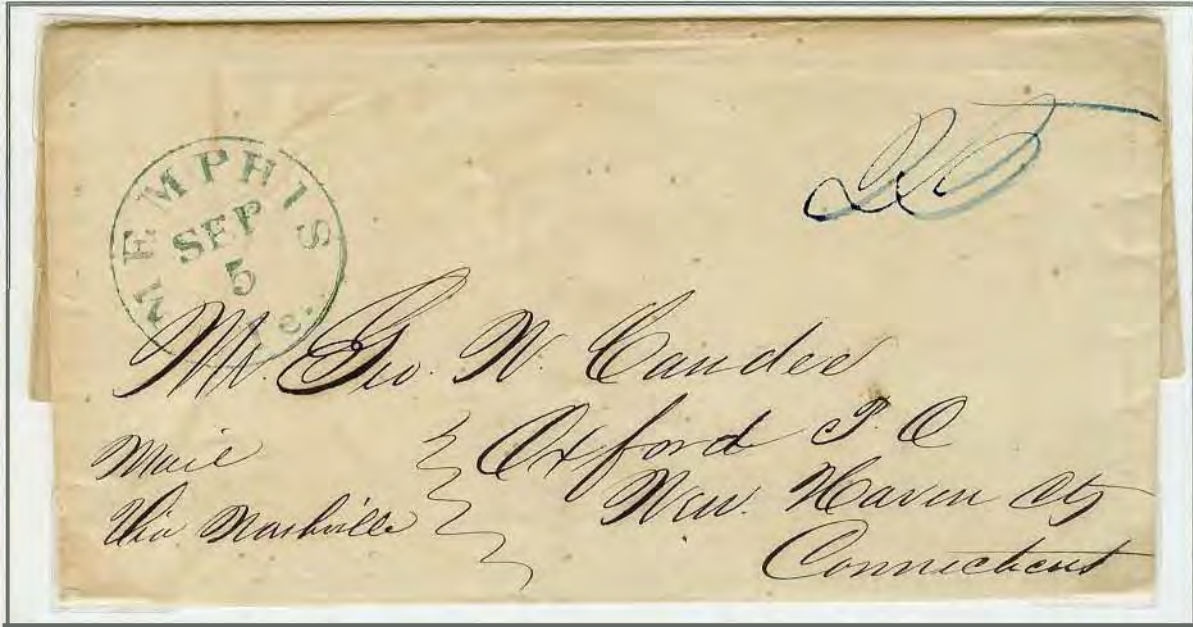 MEMPHIS
SEP
5
25
Mr. Geo. W. Candee
Oxford P. O
New. Haven Cty
Connecticut
Mail
Via Nashville